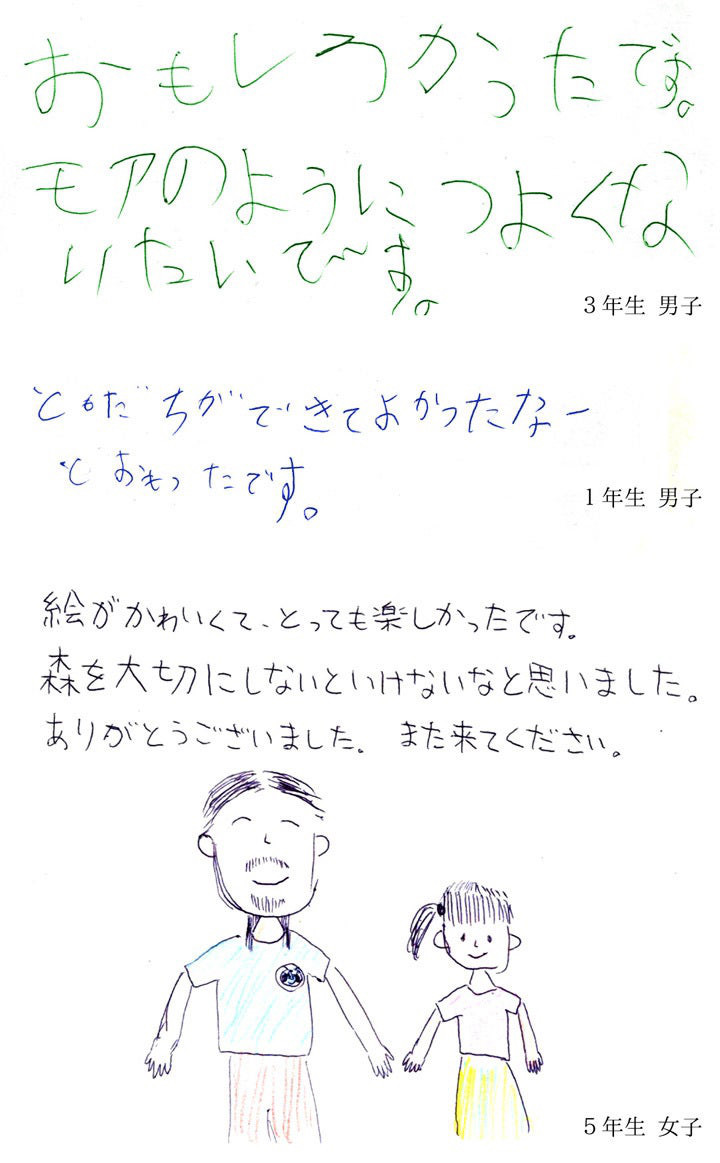 おもしろかったです。
モアのようにつよくな
りたいです。
3年生 男子
ともだちができてよかったなー
とおもったです。
1年生 男子
絵がかわいくて、とっても楽しかったです。
森を大切にしないといけないなと思いました。
ありがとうございました。 また来てください。
5年生 女子